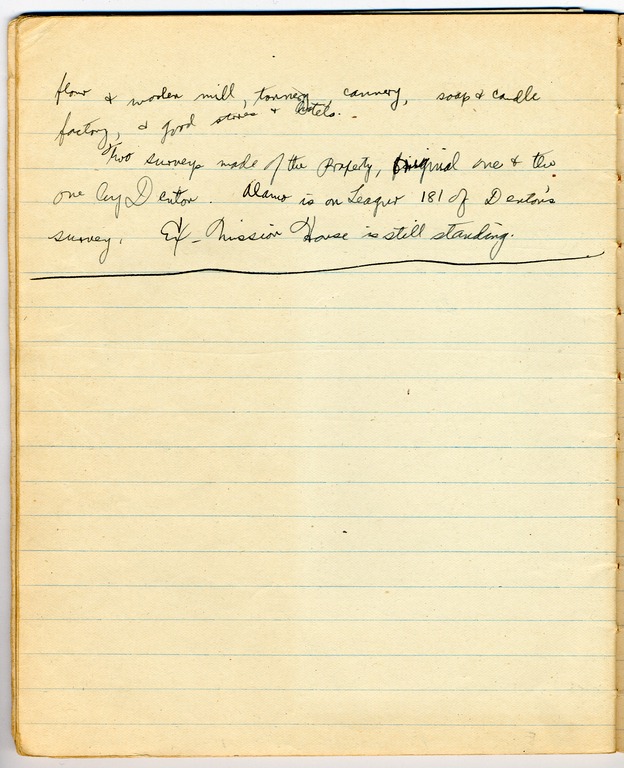 flour & woolen mill, tannery, cannery, soap & candle
factory, & good stores & hotels.
Two surveys made of the Property, Original one & the
one by Denton. Alamo is on League 181 of Denton's
survey. Ex-Mission House is still standing.